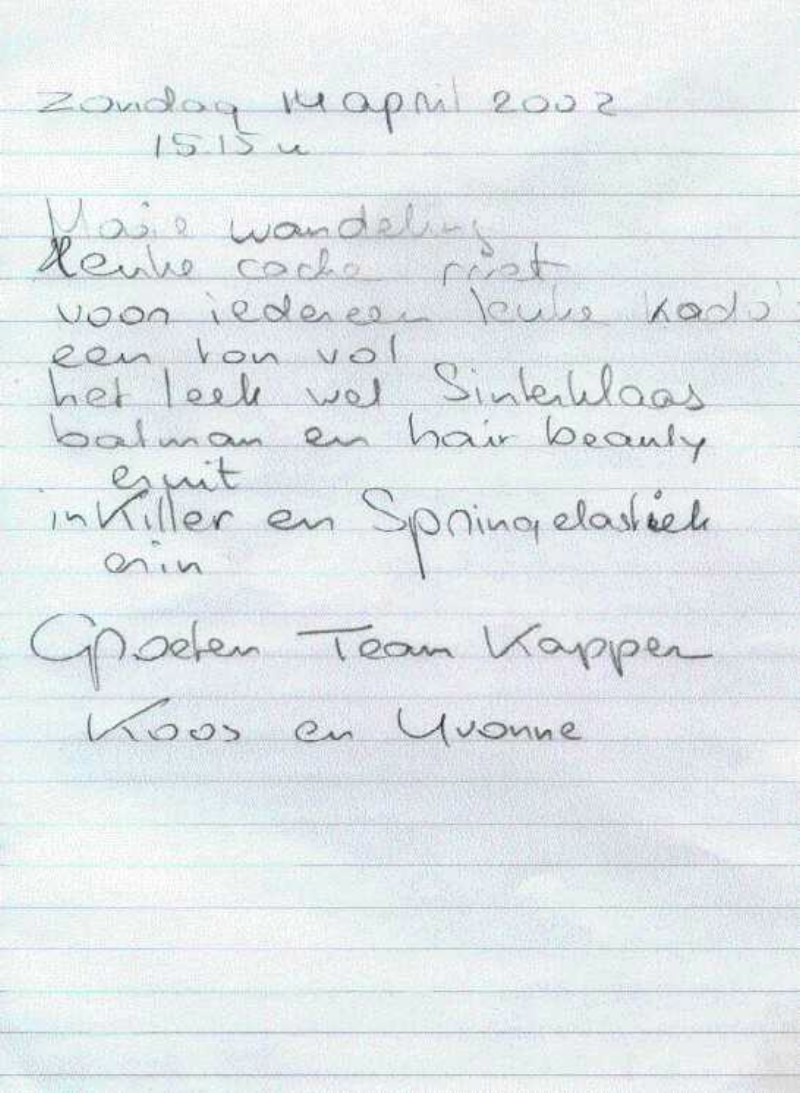 Zondag 14 april 2002
15.15 u
Mooie wandeling
leuke cache
voor iedereen leuke kado's
een ton vol
het leek wel Sinterklaas
batman en hair beauty
eruit
inKiller en Springelastiek
erin
Groeten Team Kapper
Koos en Yvonne